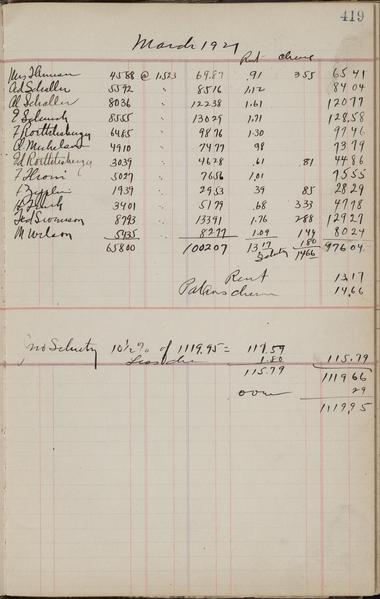 419
March 1921
Rent cheese
Mrs 4588 @ 1.523 69.87 .91 355 6541
Ad Schaller 5592 " 8516 1.12 8404
Al Schaller 8036 " 12238 1.61 12077
E 8555 " 13029 1.71 128.58
F 6485 " 9876 1.30 9746
Al Michelson 4910 " 7477 98 7379
Ed 3039 " 4628 .61 .81 4486
F 5027 " 7656 1.01 7555
1939 " 2953 39 85 2829
3401 " 5179 .68 333 4778
Ted Swenson 8793 " 13391 1.76 288 12927
M Wilson 5435 8277 1.09 144 8024
65800 100207 1317 180 97604
1466
Rent 13.17
Patrons cheese 14.66
10 1/2 % of 1119.95 = 117.59
Less 1.80 115.79
115.79 1119.66
over 29
1119.95